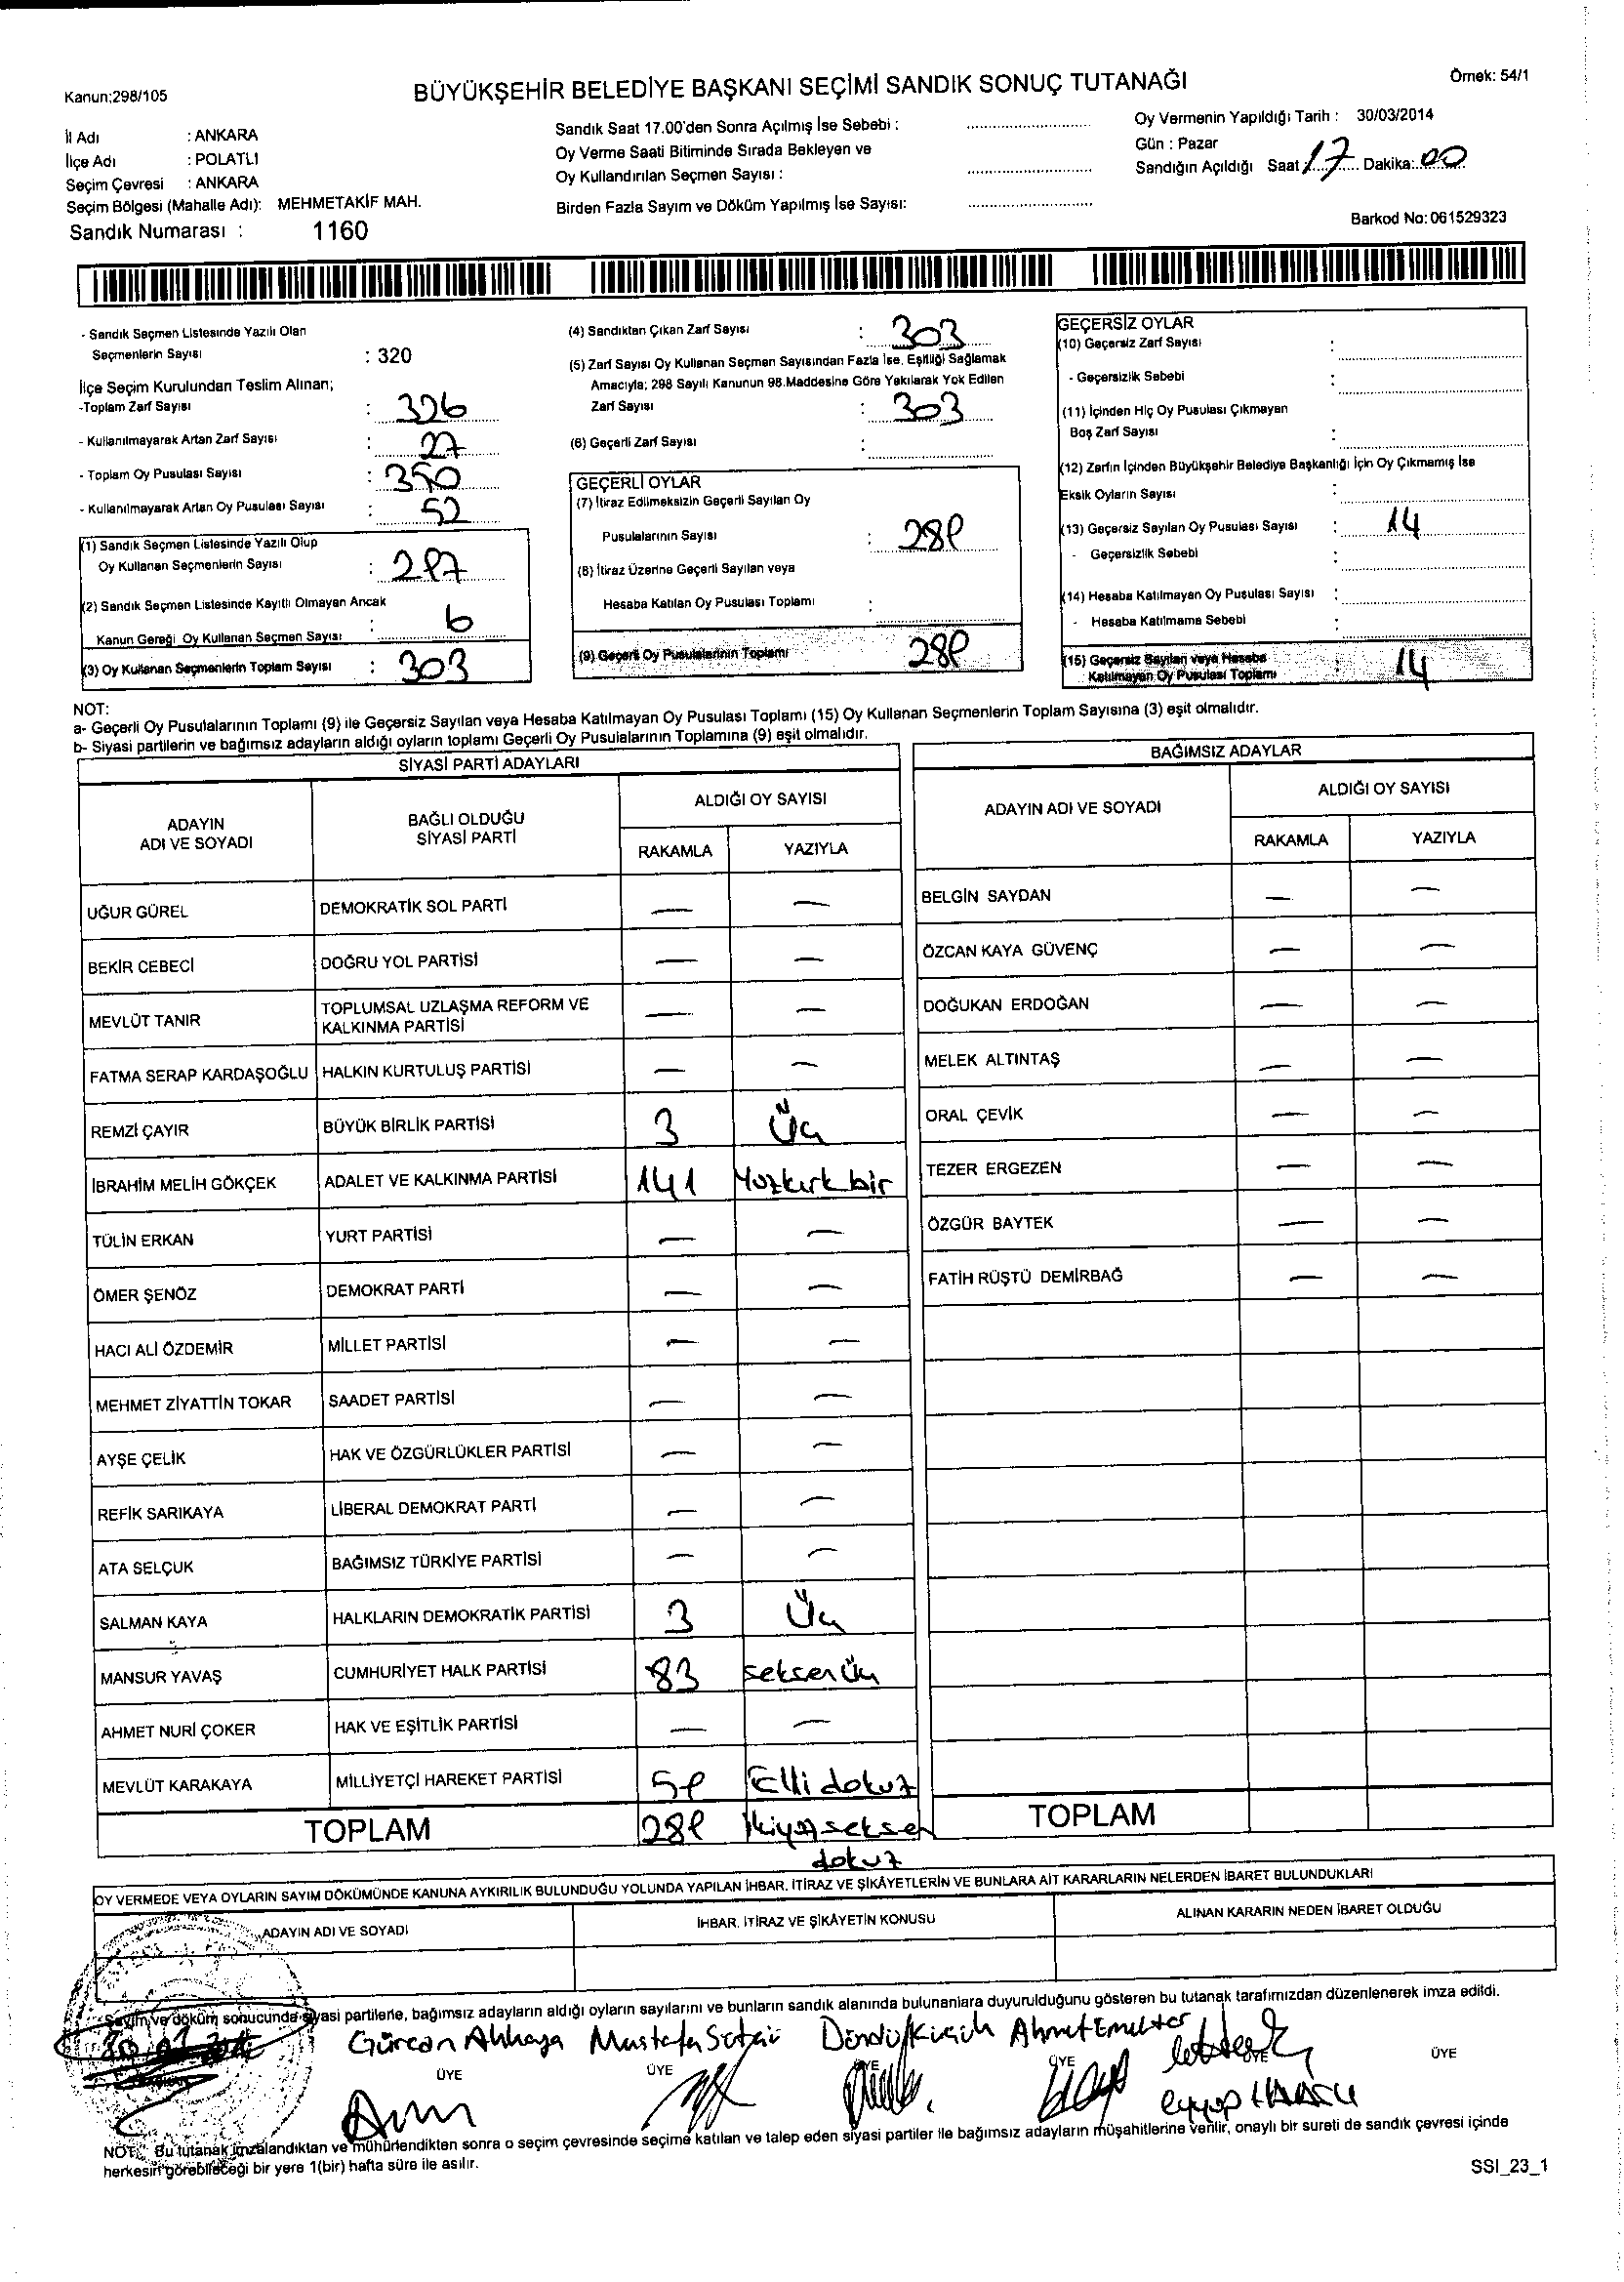 Kanun:298/105
BÜYÜKŞEHİR BELEDİYE BAŞKANI SEÇİMİ SANDIK SONUÇ TUTANAĞI
Örnek: 54/1
İl Adı : ANKARA
İlçe Adı : POLATLI
Seçim Çevresi : ANKARA
Seçim Bölgesi (Mahalle Adı): MEHMETAKİF MAH.
Sandık Numarası : 1160
Sandık Saat 17.00'den Sonra Açılmış İse Sebebi :
Oy Verme Saati Bitiminde Sırada Bekleyen ve
Oy Kullandırılan Seçmen Sayısı :
Birden Fazla Sayım ve Döküm Yapılmış İse Sayısı:
Oy Vermenin Yapıldığı Tarih : 30/03/2014
Gün : Pazar
Sandığın Açıldığı Saat : 17 Dakika: 00
Barkod No: 061529323
- Sandık Seçmen Listesinde Yazılı Olan
Seçmenlerin Sayısı : 320
İlçe Seçim Kurulundan Teslim Alınan;
-Toplam Zarf Sayısı : 326
- Kullanılmayarak Artan Zarf Sayısı : 27
- Toplam Oy Pusulası Sayısı : 350
- Kullanılmayarak Artan Oy Pusulası Sayısı : 52
(1) Sandık Seçmen Listesinde Yazılı Olup
Oy Kullanan Seçmenlerin Sayısı : 297
(2) Sandık Seçmen Listesinde Kayıtlı Olmayan Ancak
Kanun Gereği Oy Kullanan Seçmen Sayısı : 6
(3) Oy Kullanan Seçmenlerin Toplam Sayısı : 303
(4) Sandıktan Çıkan Zarf Sayısı : 303
(5) Zarf Sayısı Oy Kullanan Seçmen Sayısından Fazla İse, Eşitliği Sağlamak
Amacıyla; 298 Sayılı Kanunun 98.Maddesine Göre Yakılarak Yok Edilen
Zarf Sayısı : 303
(6) Geçerli Zarf Sayısı :
GEÇERLİ OYLAR
(7) İtiraz Edilmeksizin Geçerli Sayılan Oy
Pusulalarının Sayısı : 289
(8) İtiraz Üzerine Geçerli Sayılan veya
Hesaba Katılan Oy Pusulası Toplamı :
(9) Geçerli Oy Pusulalarının Toplamı 289
GEÇERSİZ OYLAR
(10) Geçersiz Zarf Sayısı :
- Geçersizlik Sebebi :
(11) İçinden Hiç Oy Pusulası Çıkmayan
Boş Zarf Sayısı :
(12) Zarfın İçinden Büyükşehir Belediye Başkanlığı İçin Oy Çıkmamış İse
Eksik Oyların Sayısı :
(13) Geçersiz Sayılan Oy Pusulası Sayısı : 14
- Geçersizlik Sebebi :
(14) Hesaba Katılmayan Oy Pusulası Sayısı :
- Hesaba Katılmama Sebebi :
(15) Geçersiz Sayılan veya Hesaba
Katılmayan Oy Pusulası Toplamı : 14
NOT:
a- Geçerli Oy Pusulalarının Toplamı (9) ile Geçersiz Sayılan veya Hesaba Katılmayan Oy Pusulası Toplamı (15) Oy Kullanan Seçmenlerin Toplam Sayısına (3) eşit olmalıdır.
b- Siyasi partilerin ve bağımsız adayların aldığı oyların toplamı Geçerli Oy Pusulalarının Toplamına (9) eşit olmalıdır.
SİYASİ PARTİ ADAYLARI
ADAYIN ADI VE SOYADI
BAĞLI OLDUĞU SİYASİ PARTİ
ALDIĞI OY SAYISI
RAKAMLA YAZIYLA
UĞUR GÜREL DEMOKRATİK SOL PARTİ — —
BEKİR CEBECİ DOĞRU YOL PARTİSİ — —
MEVLÜT TANIR TOPLUMSAL UZLAŞMA REFORM VE KALKINMA PARTİSİ — —
FATMA SERAP KARDAŞOĞLU HALKIN KURTULUŞ PARTİSİ — —
REMZİ ÇAYIR BÜYÜK BİRLİK PARTİSİ 3 Üç
İBRAHİM MELİH GÖKÇEK ADALET VE KALKINMA PARTİSİ 141 Yüzkırk bir
TÜLİN ERKAN YURT PARTİSİ — —
ÖMER ŞENÖZ DEMOKRAT PARTİ — —
HACI ALİ ÖZDEMİR MİLLET PARTİSİ — —
MEHMET ZİYATTİN TOKAR SAADET PARTİSİ — —
AYŞE ÇELİK HAK VE ÖZGÜRLÜKLER PARTİSİ — —
REFİK SARIKAYA LİBERAL DEMOKRAT PARTİ — —
ATA SELÇUK BAĞIMSIZ TÜRKİYE PARTİSİ — —
SALMAN KAYA HALKLARIN DEMOKRATİK PARTİSİ 3 Üç
MANSUR YAVAŞ CUMHURİYET HALK PARTİSİ 83 seksen üç
AHMET NURİ ÇOKER HAK VE EŞİTLİK PARTİSİ — —
MEVLÜT KARAKAYA MİLLİYETÇİ HAREKET PARTİSİ 59 Elli dokuz
TOPLAM 289 ikiyüz seksen
dokuz
BAĞIMSIZ ADAYLAR
ADAYIN ADI VE SOYADI
ALDIĞI OY SAYISI
RAKAMLA YAZIYLA
BELGİN SAYDAN — —
ÖZCAN KAYA GÜVENÇ — —
DOĞUKAN ERDOĞAN — —
MELEK ALTINTAŞ — —
ORAL ÇEVİK — —
TEZER ERGEZEN — —
ÖZGÜR BAYTEK — —
FATİH RÜŞTÜ DEMİRBAĞ — —
TOPLAM
OY VERMEDE VEYA OYLARIN SAYIM DÖKÜMÜNDE KANUNA AYKIRILIK BULUNDUĞU YOLUNDA YAPILAN İHBAR, İTİRAZ VE ŞİKÂYETLERİN VE BUNLARA AİT KARARLARIN NELERDEN İBARET BULUNDUKLARI
ADAYIN ADI VE SOYADI
İHBAR, İTİRAZ VE ŞİKÂYETİN KONUSU
ALINAN KARARIN NEDEN İBARET OLDUĞU
Sayım ve döküm sonucunda siyasi partilerle, bağımsız adayların aldığı oyların sayılarını ve bunların sandık alanında bulunanlara duyurulduğunu gösteren bu tutanak tarafımızdan düzenlenerek imza edildi.
Gürcan Mustafa Döndü Ahmet
ÜYE ÜYE ÜYE ÜYE ÜYE ÜYE
NOT: Bu tutanak imzalandıktan ve mühürlendikten sonra o seçim çevresinde seçime katılan ve talep eden siyasi partiler ile bağımsız adayların müşahitlerine verilir, onaylı bir sureti de sandık çevresi içinde
herkesin görebileceği bir yere 1(bir) hafta süre ile asılır.
SSI_23_1